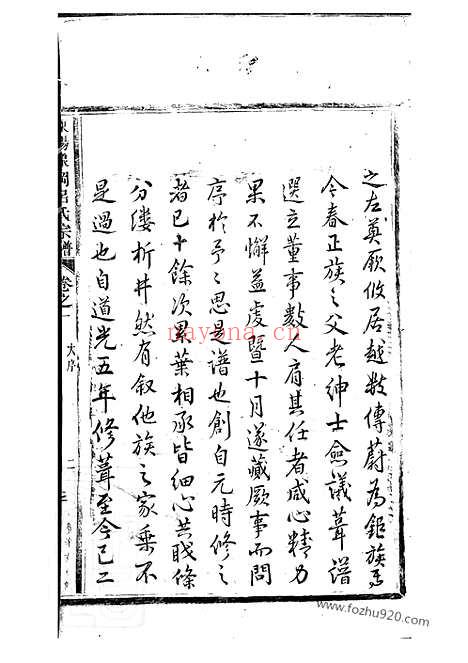 之左奠厥攸居越數傳蔚為鉅族焉
今春正族之父老紳士僉議葺譜
選立董事數人肩其任者咸心精力
果不懈益虔暨十月遂蕆厥事而問
序於予予思是譜也創自元時修之
者已十餘次累葉相承皆细心共戝條
分缕析井然有叙他族之家乘不
是過也自道光五年修葺至今已二
岡呂氏宗譜
卷之一
大序
二
nayona.cn
www.fozhu920.com